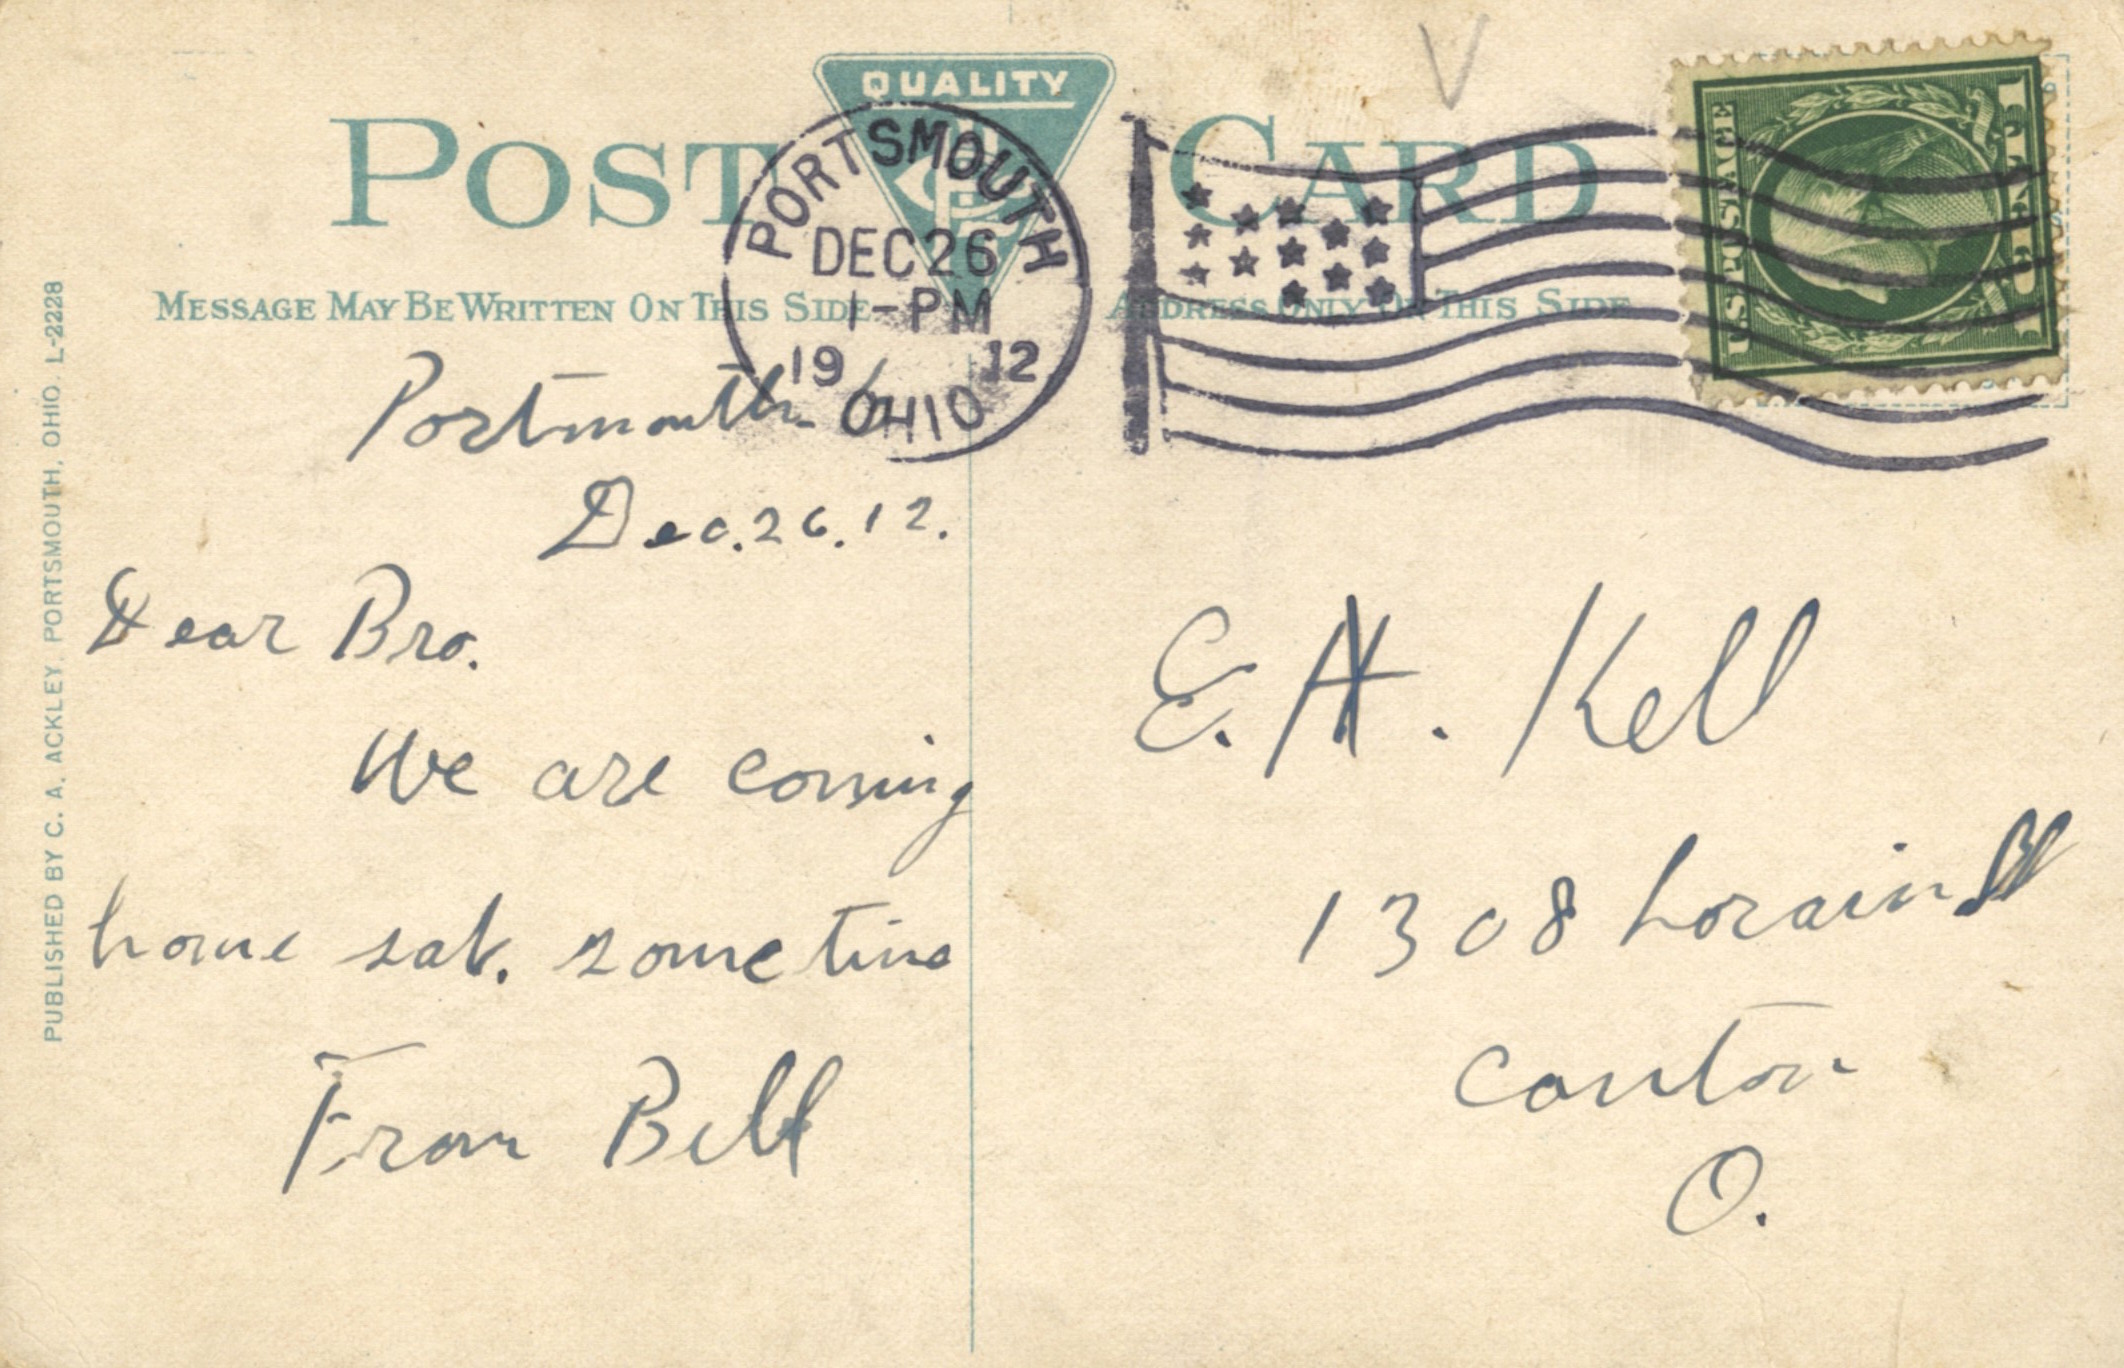 QUALITY
POST CARD
PORTSMOUTH
DEC 26
1-PM
19 12
OHIO
MESSAGE MAY BE WRITTEN ON THIS SIDE
ADDRESS ONLY ON THIS SIDE
U.S. POSTAGE
1 CENT 1
V
PUBLISHED BY C. A. ACKLEY, PORTSMOUTH, OHIO. L-2228
Portmouth O
Dec. 26. 12.
Dear Bro.
We are coming
home sat. sometime
From Bell
E. H. Kell
1308 Lorain
Canton
O.